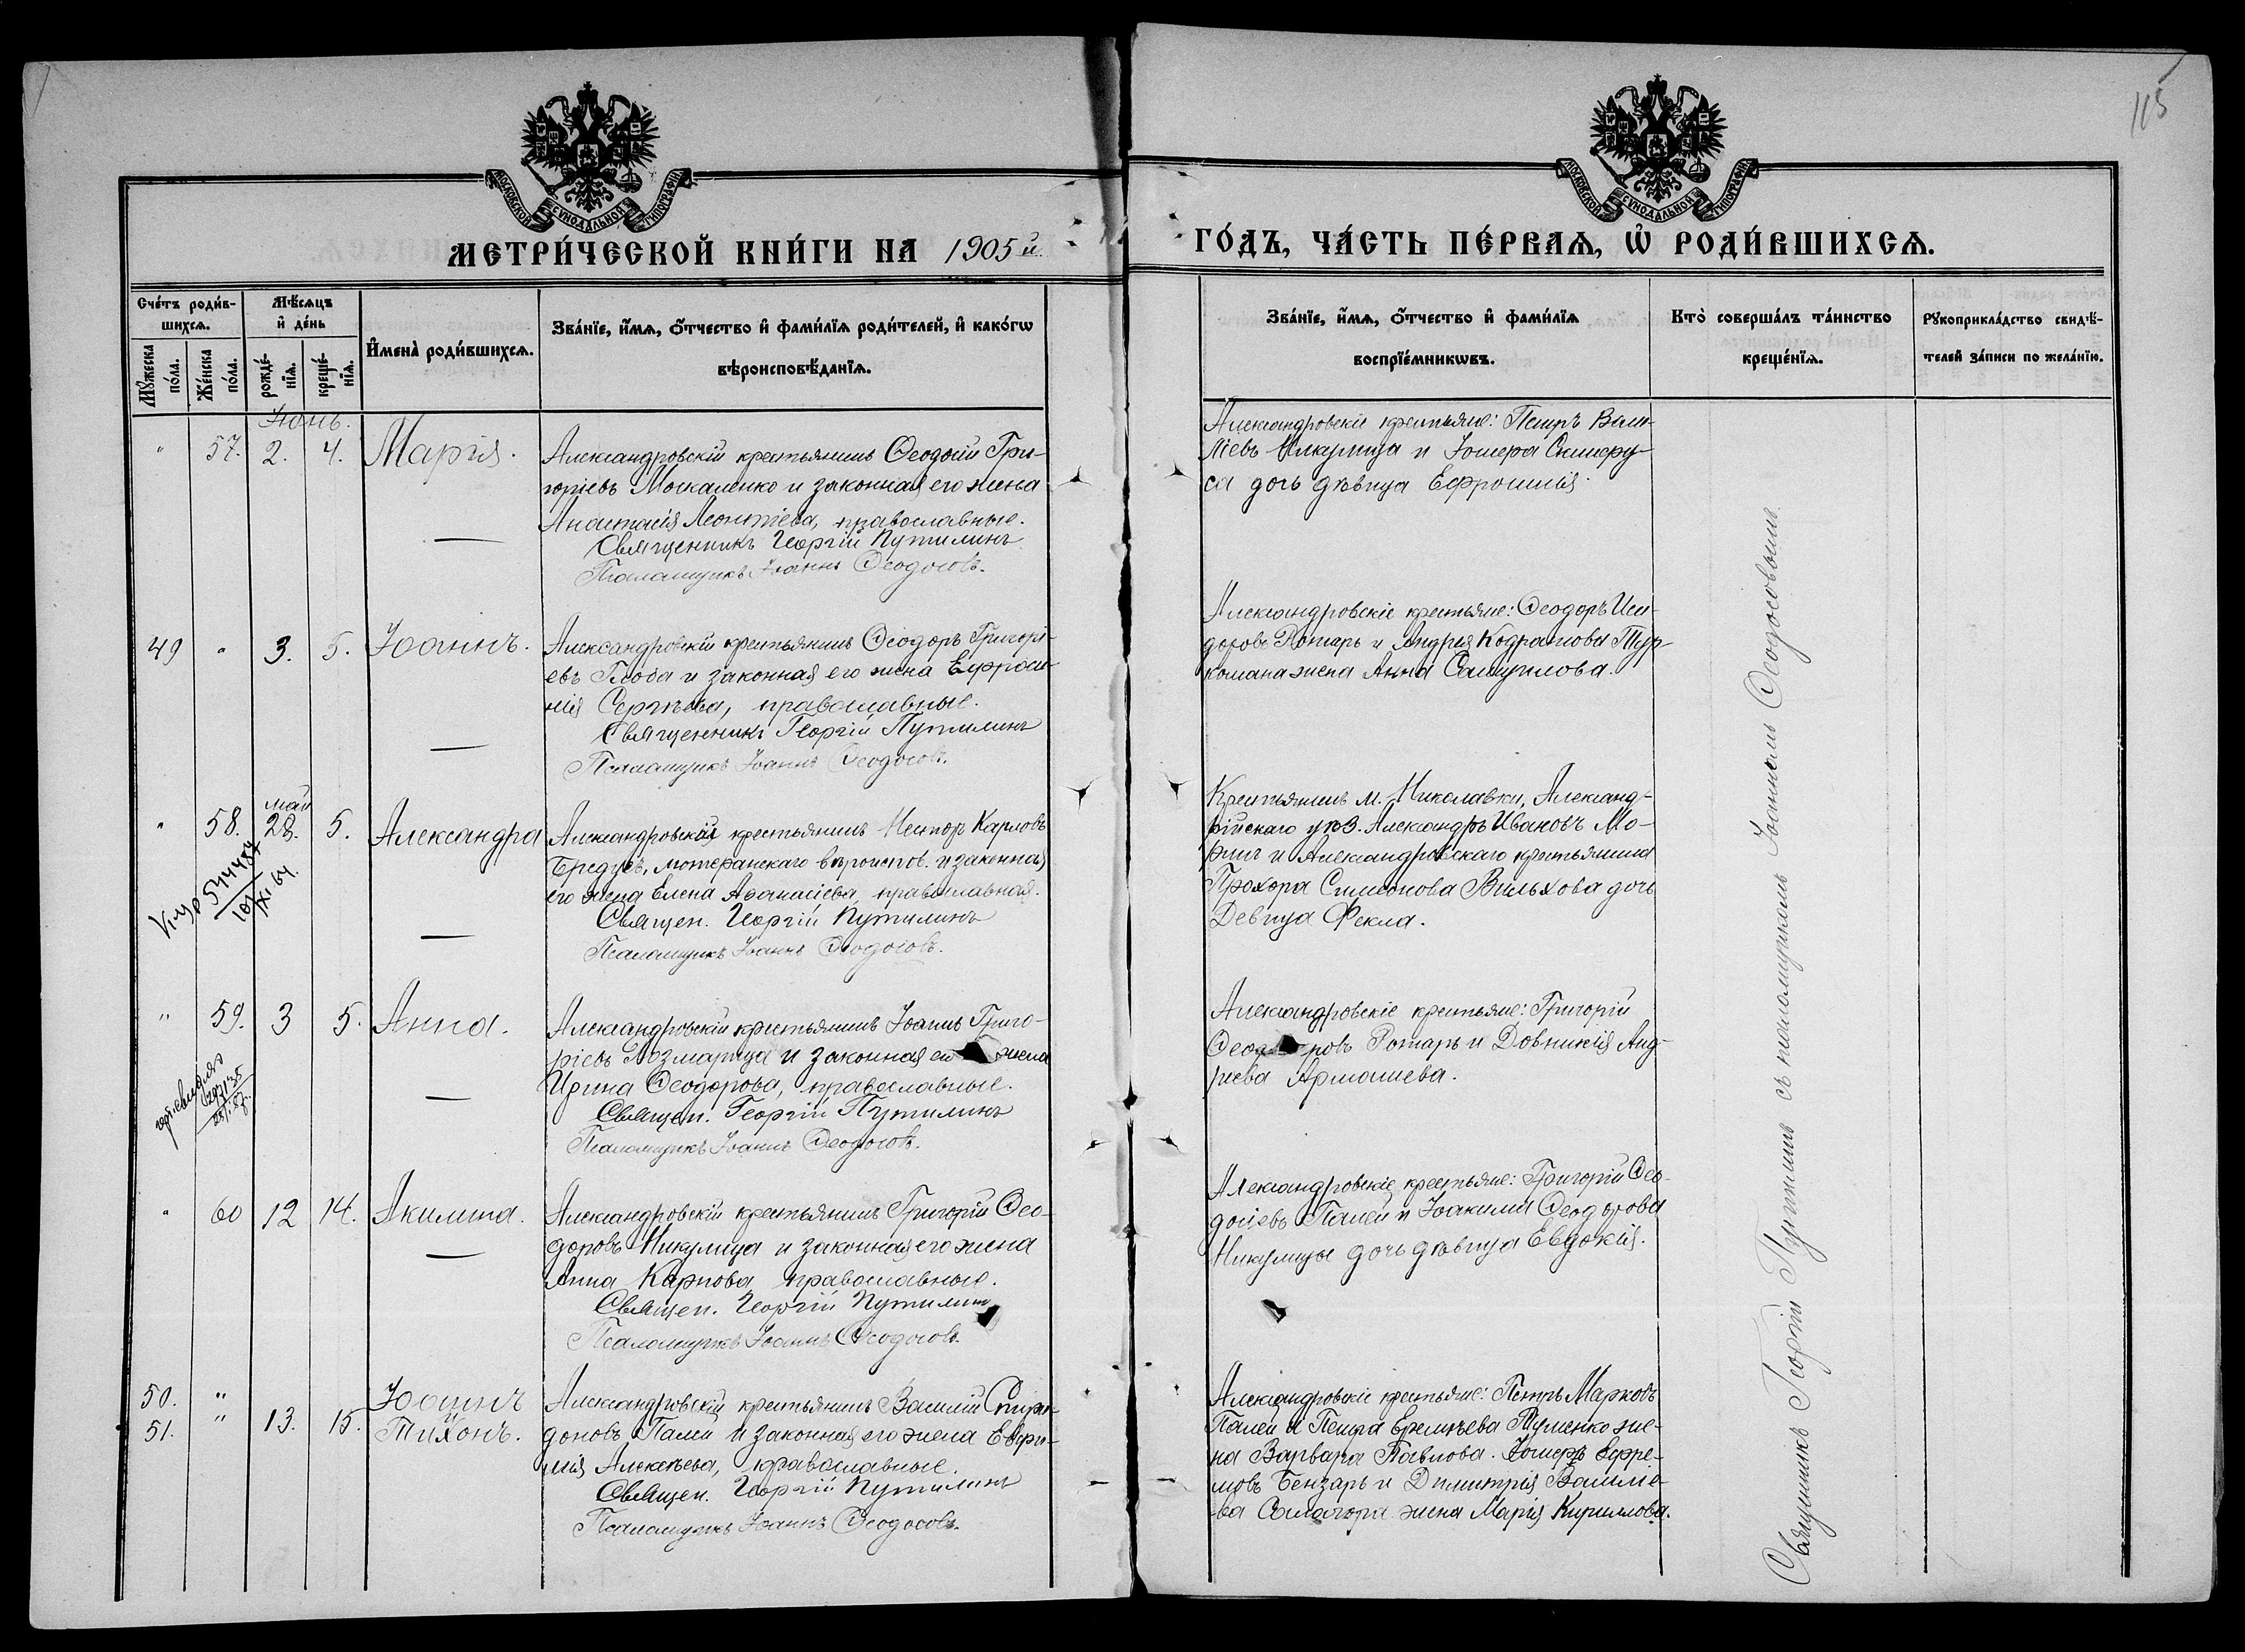 115
МОСКОВСКОЙ СѴНОДАЛЬНОЙ ТИПОГРАФІИ
МОСКОВСКОЙ СѴНОДАЛЬНОЙ ТИПОГРАФІИ
МЕТРИ́ЧЕСКОЙ КНИ́ГИ НА 1905 й.
ГО́ДЪ, ЧА́СТЬ ПЕ́РВАѦ, Ѡ҆ РОДИ́ВШИХСѦ.
Сче́тъ роди́в-
шихсѧ.
Мꙋ́жеска по́ла.
Же́нска по́ла.
Мѣ́сѧцъ
и҆ де́нь
рожде́-
нїѧ.
креще́-
нїѧ.
И҆мена̀ роди́вшихсѧ.
Зва́нїе, и҆́мѧ, ѻ҆́тчество и҆ фами́лїѧ роди́телей, и҆ како́гѡ
вѣроисповѣ́данїѧ.
Зва́нїе, и҆́мѧ, ѻ҆́тчество и҆ фами́лїѧ
воспрїе́мникѡвъ.
Кто̀ соверша́лъ та́инство
креще́нїѧ.
Рꙋкоприкла́дство свидѣ́-
телей за́писи по жела́нїю.
Іюнь.
" 57. 2. 4. Марія.
Александровскій крестьянинъ Ѳеодосій Гри-
горіевъ Москаленко и законная его жена
Анастасія Леонтіева, православные.
Священникъ Георгій Путилинъ
Псаломщикъ Іоаннъ Ѳеодосовъ.
Александровскіе крестьяне: Петръ Васи-
ліевъ Никулица и Іосифа
дочь дѣвица Ефросинія.
49 " 3. 5. Іоаннъ.
Александровскій крестьянинъ Ѳеодоръ Григорі-
евъ Глоба и законная его жена Ефроси-
нія Сергѣева, православные.
Священникъ Георгій Путилинъ
Псаломщикъ Іоаннъ Ѳеодосовъ.
Александровскіе крестьяне: Ѳеодоръ Иси-
доровъ Ротарь и Андрея Кодратова Тур-
комана жена Анна Самуилова.
" 58. май 28. 5. Александра
Александровскій крестьянинъ Несторъ Карловъ
Бредуєв, лютеранскаго вѣроиспов. и законная
его жена Елена Аѳанасіева, православная.
Священ. Георгій Путилинъ
Псаломщикъ Іоаннъ Ѳеодосовъ.
Крестьянинъ м. Николаевки, Александ-
рійскаго уѣз. Александръ Ивановъ Мо-
и Александровскаго крестьянина
Прохора Симеонова Вильхова дочь
Девица Фекла.
" 59. 3 5. Анна.
Александровскій крестьянинъ Іоаннъ Григо-
ріевъ Козмарица и законная его жена
Ирина Ѳеодорова, православные.
Священ. Георгій Путилинъ
Псаломщикъ Іоаннъ Ѳеодосовъ.
Александровскіе крестьяне: Григорій
Ѳеодоровъ Ротарь и Довникія Анд-
реева Армашева.
" 60 12 14. Акилина.
Александровскій крестьянинъ Григорій Ѳео-
доровъ Никулица и законная его жена
Анна Карпова православные.
Священ. Георгій Путилинъ
Псаломщикъ Іоаннъ Ѳеодосовъ.
Александровскіе крестьяне: Григорій Ѳео-
досіевъ Палей и Іоакима Ѳеодорова
Никулицы дочь дѣвица Евдокія.
50. "
51. " 13. 15. Іоаннъ
и
Тихонъ.
Александровскій крестьянинъ Василій Спири-
доновъ Палей и законная его жена Евфи-
мія Алексѣева, православные.
Священ. Георгій Путилинъ
Псаломщикъ Іоаннъ Ѳеодосовъ.
Александровскіе крестьяне: Петръ Марковъ
Палей и Петра Еремѣева Туменко же-
на Варвара Павлова. Іосифъ Ефре-
мовъ Бензарь и Димитрія Василіе-
ва жена Марія Кириллова.
Священникъ Георгій Путилинъ съ псаломщикомъ Іоанномъ Ѳеодосовымъ.